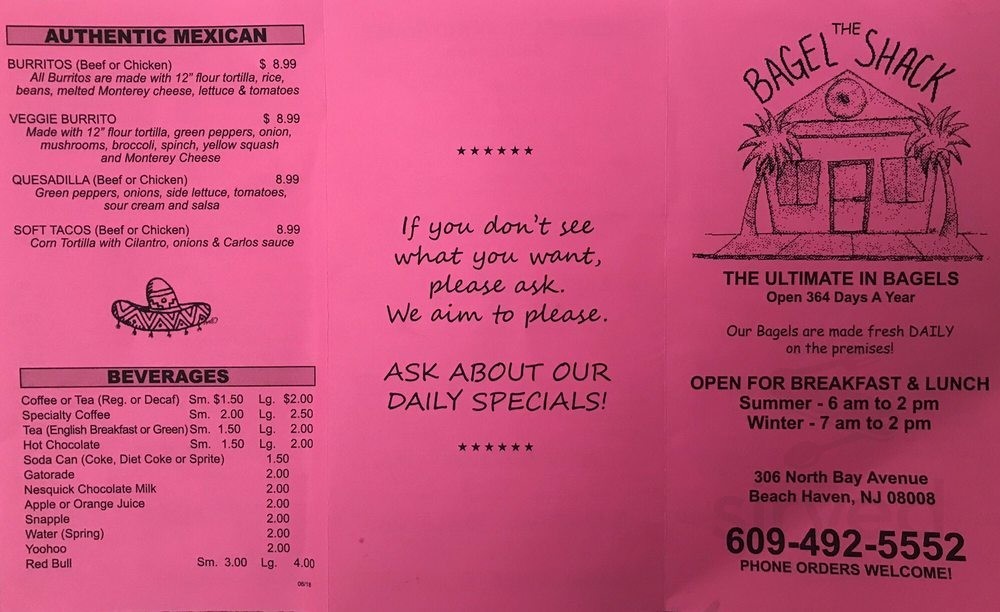 AUTHENTIC MEXICAN
BURRITOS (Beef or Chicken) $ 8.99
All Burritos are made with 12" flour tortilla, rice,
beans, melted Monterey cheese, lettuce & tomatoes
VEGGIE BURRITO $ 8.99
Made with 12" flour tortilla, green peppers, onion,
mushrooms, broccoli, spinch, yellow squash
and Monterey Cheese
QUESADILLA (Beef or Chicken) 8.99
Green peppers, onions, side lettuce, tomatoes,
sour cream and salsa
SOFT TACOS (Beef or Chicken) 8.99
Corn Tortilla with Cilantro, onions & Carlos sauce
BEVERAGES
Coffee or Tea (Reg. or Decaf) Sm. $1.50 Lg. $2.00
Specialty Coffee Sm. 2.00 Lg. 2.50
Tea (English Breakfast or Green) Sm. 1.50 Lg. 2.00
Hot Chocolate Sm. 1.50 Lg. 2.00
Soda Can (Coke, Diet Coke or Sprite) 1.50
Gatorade 2.00
Nesquick Chocolate Milk 2.00
Apple or Orange Juice 2.00
Snapple 2.00
Water (Spring) 2.00
Yoohoo 2.00
Red Bull Sm. 3.00 Lg. 4.00
06/18
★★★★★★
If you don't see
what you want,
please ask.
We aim to please.
ASK ABOUT OUR
DAILY SPECIALS!
★★★★★★
THE
BAGEL SHACK
THE ULTIMATE IN BAGELS
Open 364 Days A Year
Our Bagels are made fresh DAILY
on the premises!
OPEN FOR BREAKFAST & LUNCH
Summer - 6 am to 2 pm
Winter - 7 am to 2 pm
306 North Bay Avenue
Beach Haven, NJ 08008
609-492-5552
PHONE ORDERS WELCOME!